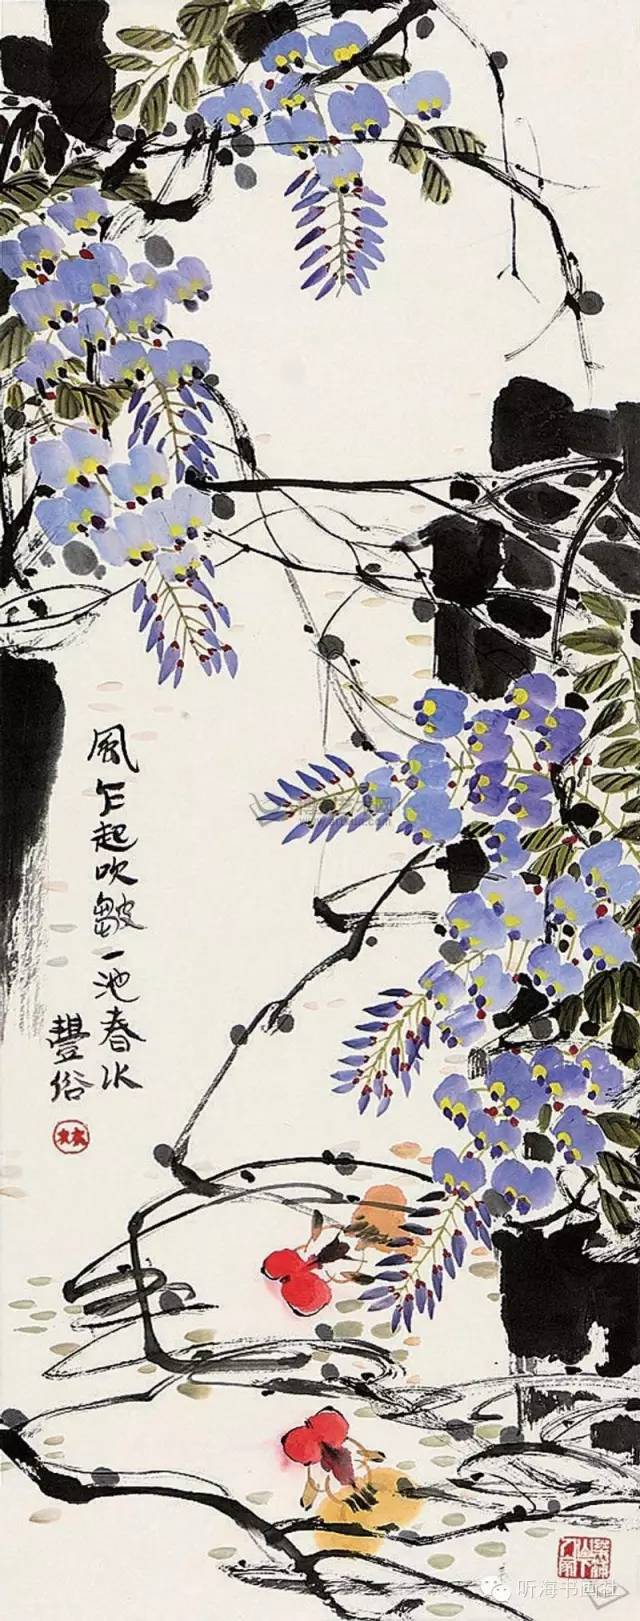 风乍起吹皱一池春水
豐俗
听海书画社